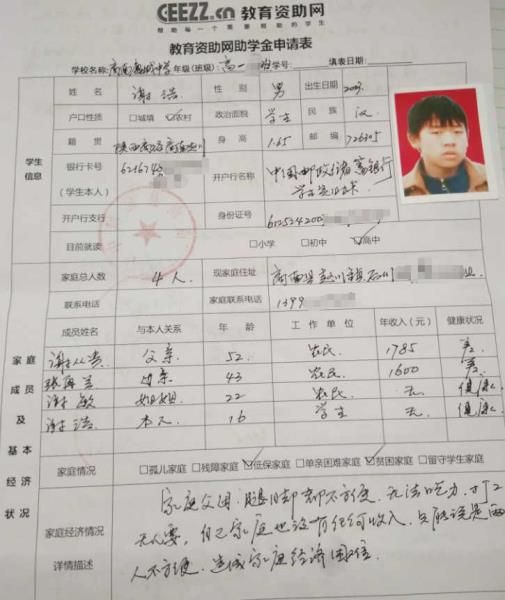 CEEZZ.cn 教育资助网
帮助每一个需要帮助的学生
教育资助网助学金申请表
学校名称: 年级(班级): 高一 学号: 填表日期:
姓名 谢浩 性别 男 出生日期
户口性质 □城镇 ☑农村 政治面貌 学生 民族 汉
籍贯 身高 1.65 邮编 726305
学生信息
银行卡号(学生本人) 621674 开户行名称 中国邮政储蓄银行
开户行支行 身份证号 612524200
目前就读 □小学 □初中 ☑高中
家庭总人数 4人 现家庭住址 商南县
联系电话 家庭联系电话 1399
家庭成员及基本经济状况
成员姓名 与本人关系 年龄 工作单位 年收入(元) 健康状况
父亲 52 农民 1785 差
母亲 43 农民 1600 差
谢敏 姐姐 22 农民 无 健康
谢浩 本人 16 学生 无 健康
家庭情况 □孤儿家庭 □残障家庭 ☑低保家庭 □单亲困难家庭 ☑贫困家庭 □留守学生家庭
家庭经济情况详情描述
家庭父母腿 都不方便,无法吃力,打工
无人要,自己家庭也没有任何收入,
人不方便,造成家庭经济困